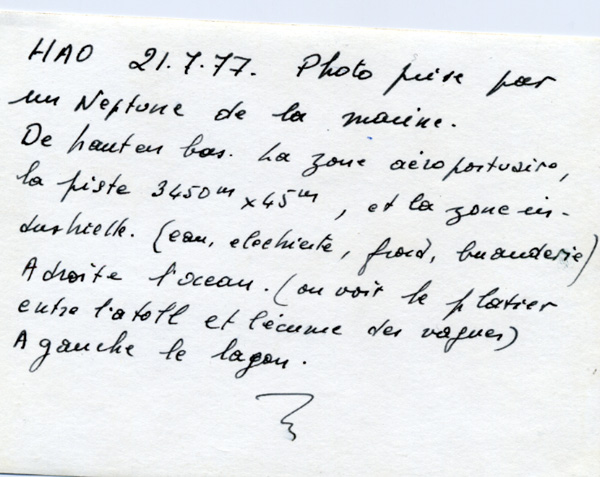 HAO 21.7.77. Photo prise par
un Neptune de la marine.
De haut en bas. La zone aéroportuaire,
la piste 3450m x 45m, et la zone in-
dustrielle. (eau, electricité, froid, buanderie)
A droite l'ocean. (on voit le platier
entre l'atoll et l'écume des vagues)
A gauche le lagon.